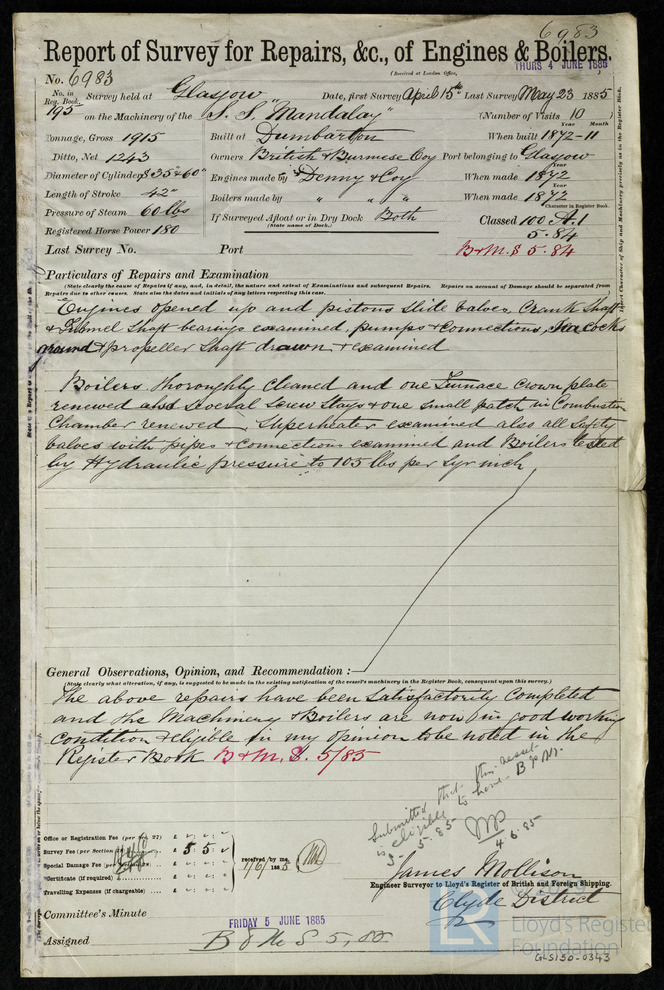 6983
Report of Survey for Repairs, &c., of Engines & Boilers.
THURS 4 JUNE 1885
(Received at London Office,
No. 6983
No. in Reg. Book. 195 Survey held at Glasgow Date, first Survey April 15th Last Survey May 23 1885
on the Machinery of the S.S. "Mandalay" (Number of Visits 10)
Tonnage, Gross 1915 Built at Dumbarton When built 1872-11
Year Month
Ditto, Net 1243 Owners British & Burmese Coy Port belonging to Glasgow
Diameter of Cylinders 35" & 60" Engines made by Denny & Coy When made 1872
Year
Length of Stroke 42" Boilers made by " " " When made 1872
Year
Pressure of Steam 60 lbs If Surveyed Afloat or in Dry Dock Both Classed 100 A.1
(State name of Dock.)
Character in Register Book.
Registered Horse Power 180 5.84
Last Survey No. Port B&M.S 5.84
Particulars of Repairs and Examination
(State clearly the cause of Repairs if any, and, in detail, the nature and extent of Examinations and subsequent Repairs. Repairs on account of Damage should be separated from
Repairs due to other causes. State also the dates and initials of any letters respecting this case.)
Engines opened up and pistons slide valves, Crank Shaft
& Tunnel Shaft bearings examined, pumps & connections, Sea Cocks
ground & propeller Shaft drawn & examined
Boilers thoroughly cleaned and one Furnace Crown plate
renewed also several Screw Stays & one small patch in Combustion
Chamber renewed. Superheater examined also all Safety
valves with pipes & connections examined and Boilers tested
by Hydraulic pressure to 105 lbs per sqr inch
General Observations, Opinion, and Recommendation :—
(State clearly what alteration, if any, is suggested to be made in the existing notification of the vessel's machinery in the Register Book, consequent upon this survey.)
The above repairs have been Satisfactorily Completed
and the Machinery & Boilers are now in good working
condition & eligible in my opinion to be noted in the
Register Book B&M.S. 5/85
Submitted that this vessel
is eligible to have B & M.
S 5.85
4.6.85
Office or Registration Fee (per Sec. 27) £
Survey Fee (per Section £ 5 5
Special Damage Fee (per £
Certificate (if required) £
Travelling Expenses (if chargeable) £
received by me, 1/6/1885
James Mollison
Engineer Surveyor to Lloyd's Register of British and Foreign Shipping.
Clyde District
Committee's Minute
FRIDAY 5 JUNE 1885
Assigned B & M S 5, 85
LR
Lloyd's Register
Foundation
GLS150-0343